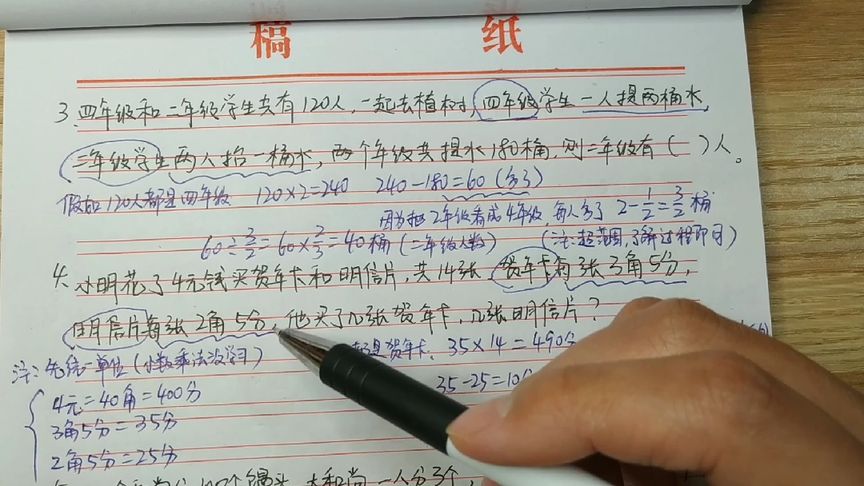 稿 纸
3. 四年级和二年级学生共有120人,一起去植树,四年级学生一人提两桶水,
二年级学生两人抬一桶水,两个年级共提水180桶,则二年级有( )人。
假如120人都是四年级 120×2=240 240-180=60(多了)
因为把2年级看成4年级 每人多了 2-1/2=3/2桶
60÷3/2=60×2/3=40桶(二年级人数) (注:超范围,了解过程即可)
4. 小明花了4元钱买贺年卡和明信片,共14张,贺年卡每张3角5分,
明信片每张2角5分,他买了几张贺年卡,几张明信片?
注:先统一单位(小数乘法没学习) 都是贺年卡. 35×14=490分
4元=40角=400分 35-25=10分
3角5分=35分
2角5分=25分
个馒头,大和尚一人分3个,